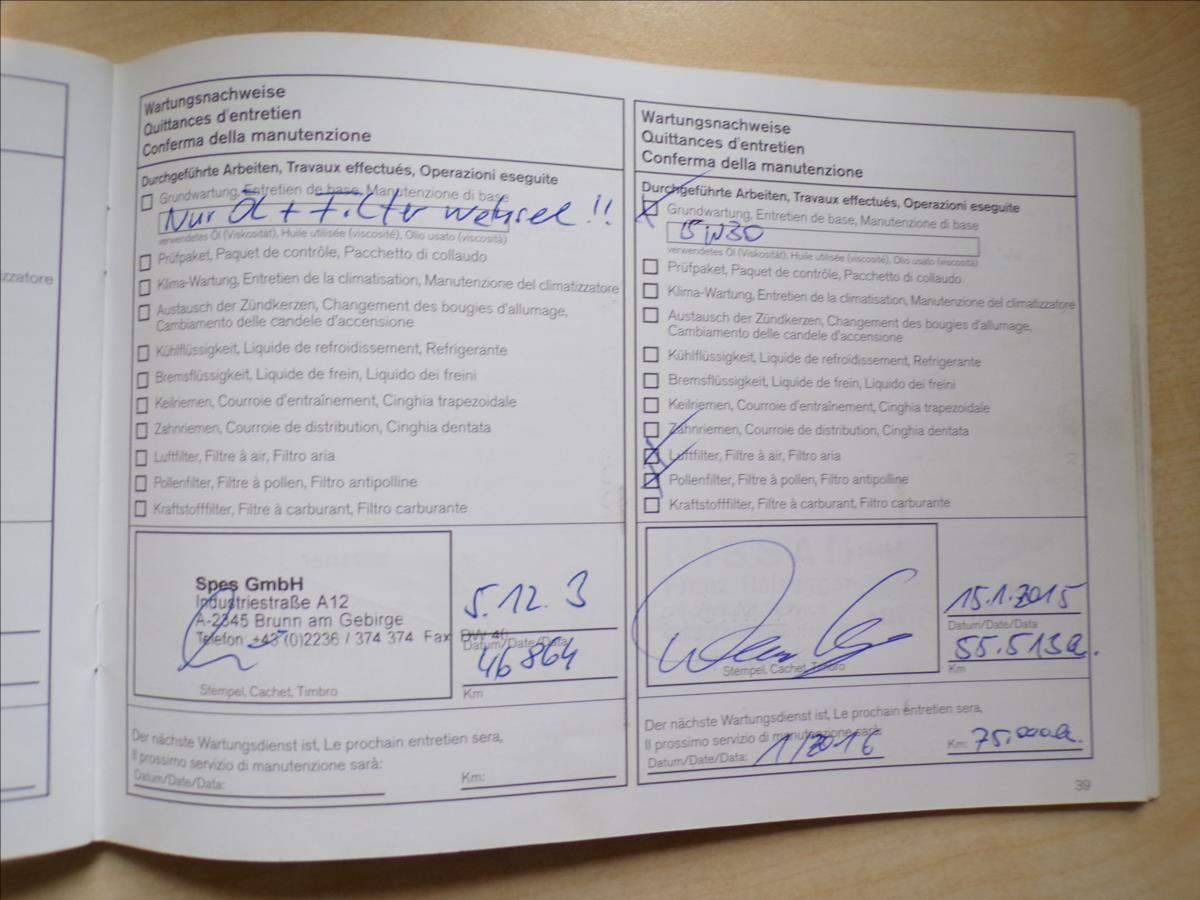 zzatore
Wartungsnachweise
Quittances d'entretien
Conferma della manutenzione
Durchgeführte Arbeiten, Travaux effectués, Operazioni eseguite
Grundwartung, Entretien de base, Manutenzione di base
Nur Öl + Filter wechsel !!
verwendetes Öl (Viskosität), Huile utilisée (viscosité), Olio usato (viscosità)
Prüfpaket, Paquet de contrôle, Pacchetto di collaudo
Klima-Wartung, Entretien de la climatisation, Manutenzione del climatizzatore
Austausch der Zündkerzen, Changement des bougies d'allumage,
Cambiamento delle candele d'accensione
Kühlflüssigkeit, Liquide de refroidissement, Refrigerante
Bremsflüssigkeit, Liquide de frein, Liquido dei freini
Keilriemen, Courroie d'entraînement, Cinghia trapezoidale
Zahnriemen, Courroie de distribution, Cinghia dentata
Luftfilter, Filtre à air, Filtro aria
Pollenfilter, Filtre à pollen, Filtro antipolline
Kraftstofffilter, Filtre à carburant, Filtro carburante
Spes GmbH
Industriestraße A12
A-2345 Brunn am Gebirge
Telefon +43 (0)2236 / 374 374 Fax
Stempel, Cachet, Timbro
5.12.3
Datum/Date/Data
46 864
Km
Der nächste Wartungsdienst ist, Le prochain entretien sera,
Il prossimo servizio di manutenzione sarà:
Datum/Date/Data:
Km:
Wartungsnachweise
Quittances d'entretien
Conferma della manutenzione
Durchgeführte Arbeiten, Travaux effectués, Operazioni eseguite
Grundwartung, Entretien de base, Manutenzione di base
5W30
verwendetes Öl (Viskosität), Huile utilisée (viscosité), Olio usato (viscosità)
Prüfpaket, Paquet de contrôle, Pacchetto di collaudo
Klima-Wartung, Entretien de la climatisation, Manutenzione del climatizzatore
Austausch der Zündkerzen, Changement des bougies d'allumage,
Cambiamento delle candele d'accensione
Kühlflüssigkeit, Liquide de refroidissement, Refrigerante
Bremsflüssigkeit, Liquide de frein, Liquido dei freini
Keilriemen, Courroie d'entraînement, Cinghia trapezoidale
Zahnriemen, Courroie de distribution, Cinghia dentata
Luftfilter, Filtre à air, Filtro aria
Pollenfilter, Filtre à pollen, Filtro antipolline
Kraftstofffilter, Filtre à carburant, Filtro carburante
Stempel, Cachet, Timbro
15.1.2015
Datum/Date/Data
55.513
Km
Der nächste Wartungsdienst ist, Le prochain entretien sera,
Il prossimo servizio di manutenzione sarà:
Datum/Date/Data: 1/2016
Km: 75.000
39